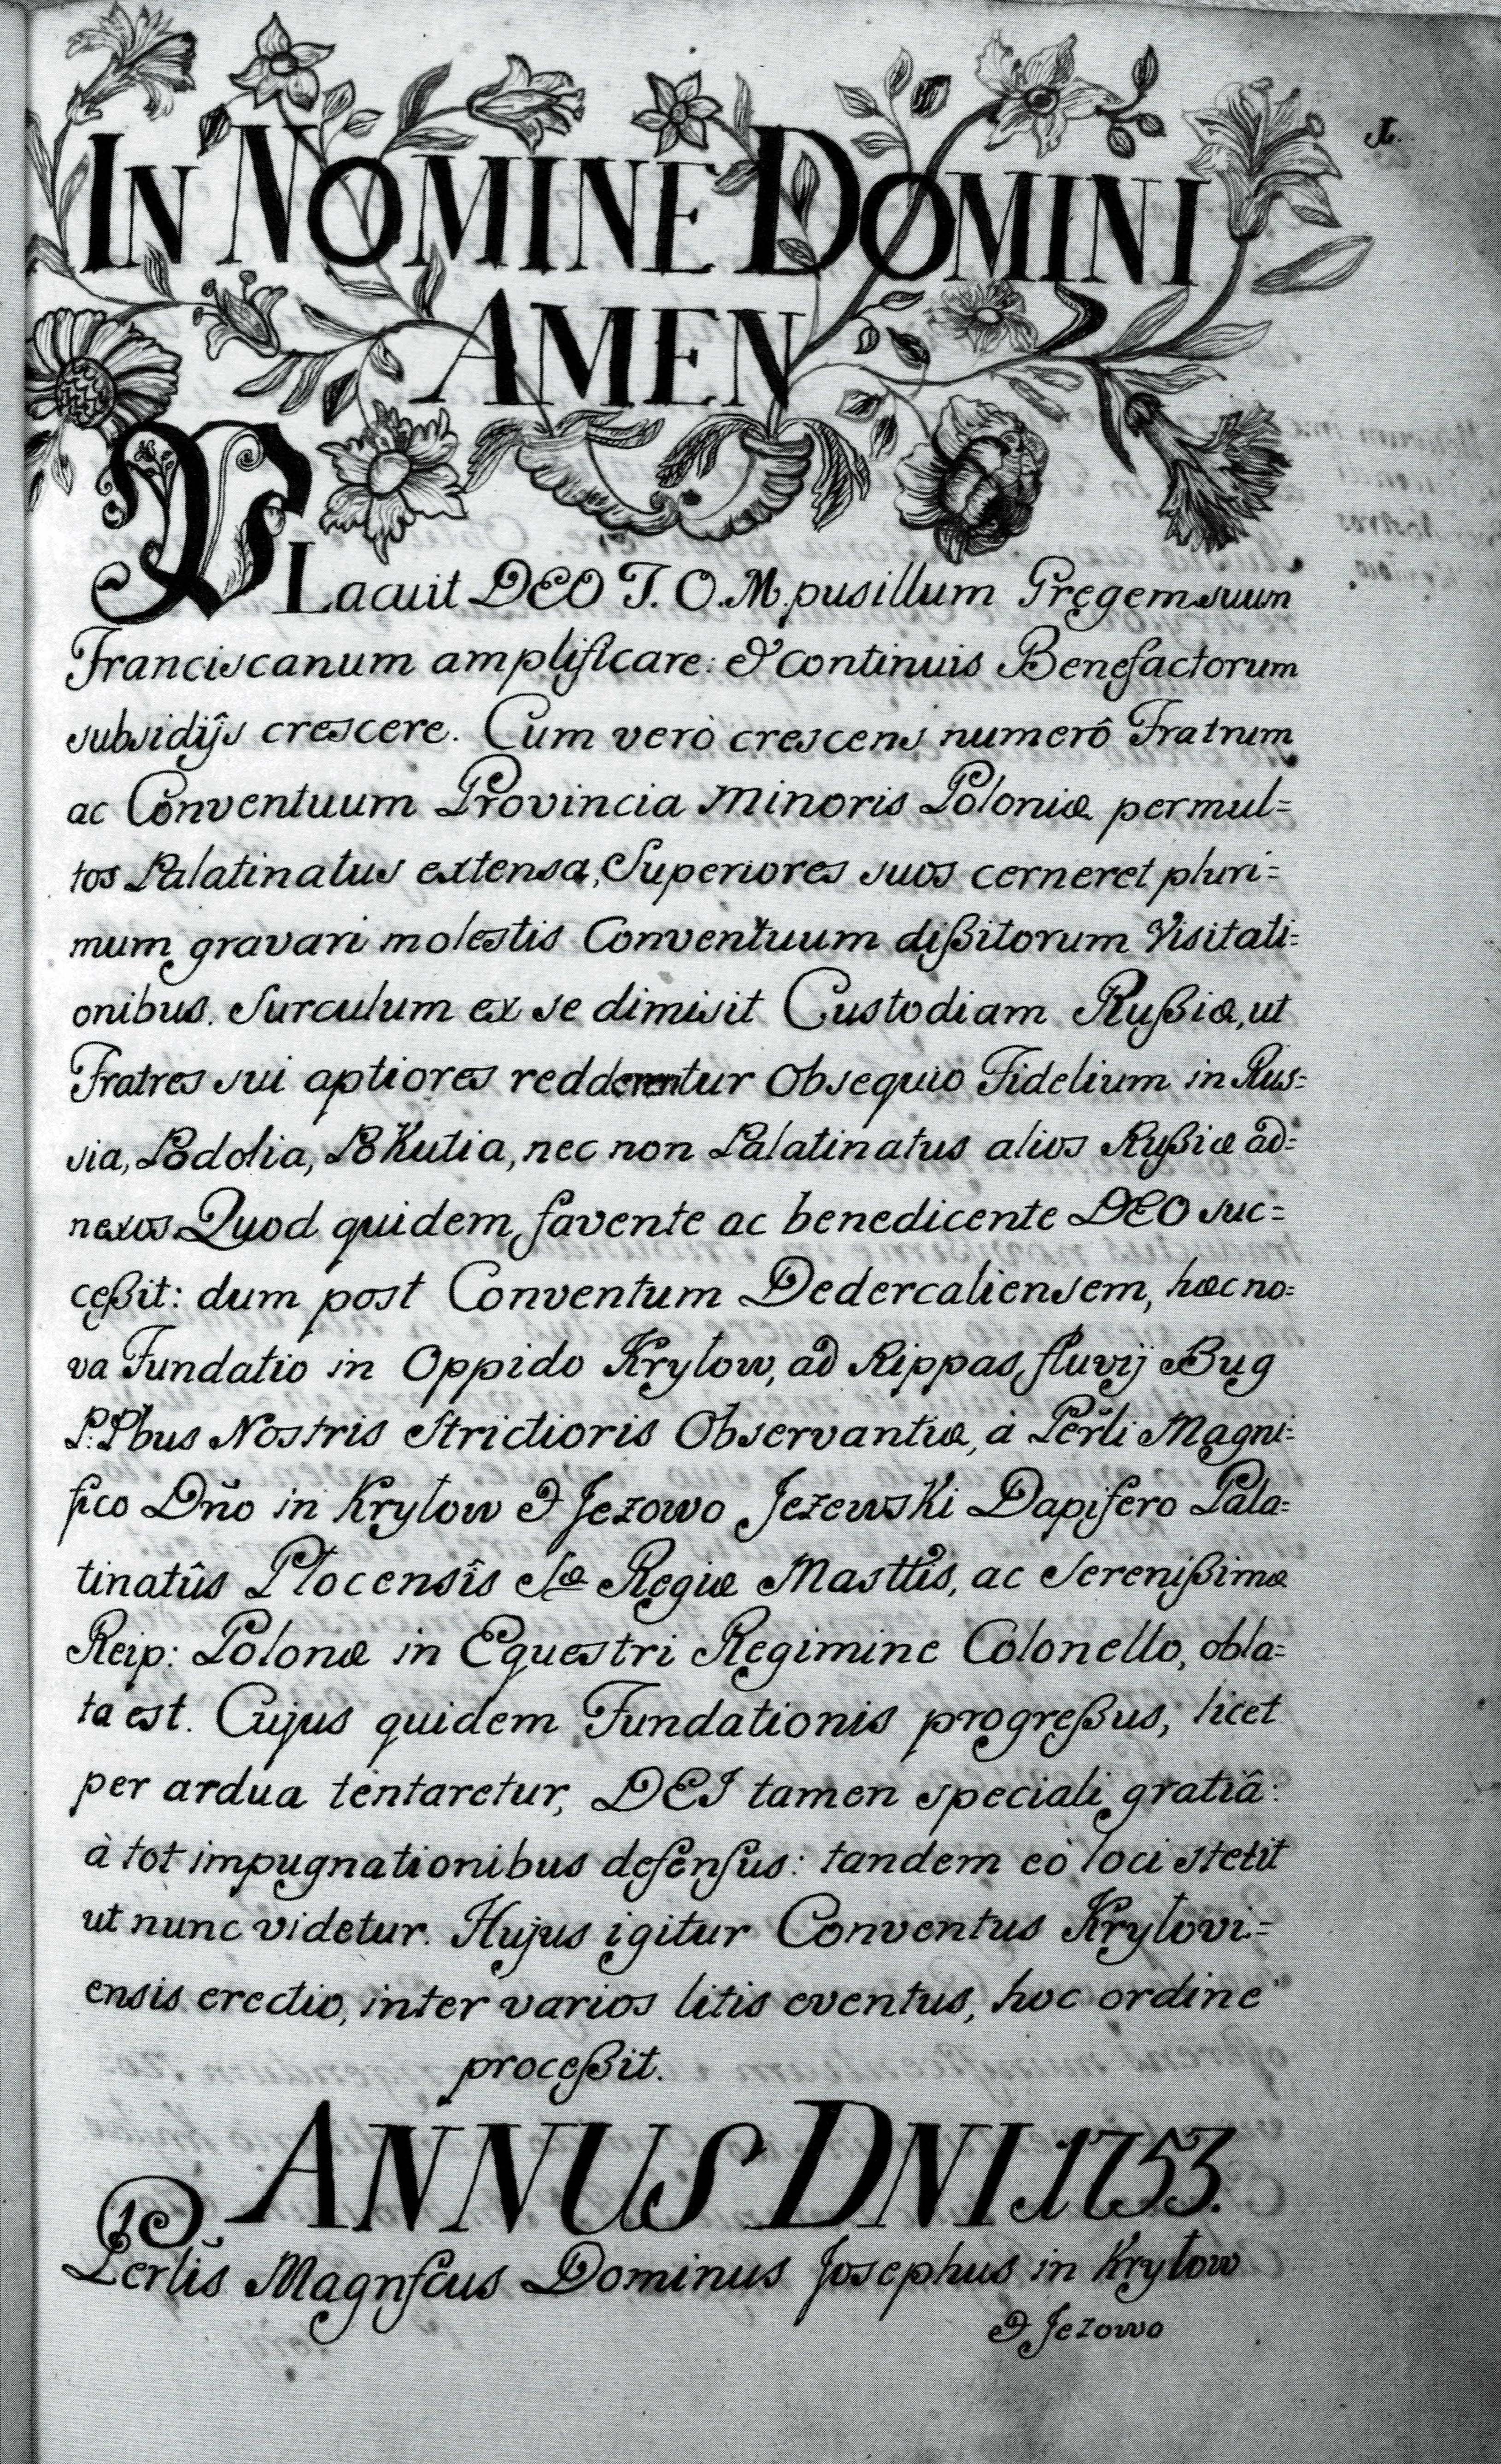 1.
IN NOMINE DOMINI
AMEN
PLacuit DEO T. O. M. pusillum Gregem suum
Franciscanum amplificare: & continuis Benefactorum
subsidijs crescere. Cum verò crescens numerô Fratrum
ac Conventuum Provincia Minoris Poloniæ permul=
tos Palatinatus extensa, Superiores suos cerneret pluri=
mum gravari molestis Conventuum dißitorum Visitati=
onibus. Surculum ex se dimisit Custodiam Rußiæ, ut
Fratres sui aptiores redderentur Obsequio Fidelium in Rus=
sia, Podolia, PoKutia, nec non Palatinatus alios Rußiæ ad=
nexos. Quod quidem favente ac benedicente DEO suc=
ceßit: dum post Conventum Dedercaliensem, hæc no=
va Fundatio in Oppido Kryłow, ad Rippas fluvij Bug
P.Pbus Nostris Strictioris Observantiæ, à Perlĩ Magni=
fico Dño in Kryłow & Jezowo JezewsKi Dapifero Pala=
tinatûs Plocensîs Sæ Regiæ Masttis, ac Serenißimæ
Reip: Polonæ in Equestri Regimine Colonello, obla=
ta est. Cujus quidem Fundationis progreßus, licet
per ardua tentaretur, DEI tamen speciali gratiâ:
à tot impugnationibus defensus: tandem eò loci stetit
ut nunc videtur. Hujus igitur Conventus Kryłovi=
ensis erectio, inter varios litis eventus, hoc ordine
proceßit.
ANNUS DNI 1753.
Perlis̃ Magnfcus Dominus Josephus in Kryłow
& Jezowo